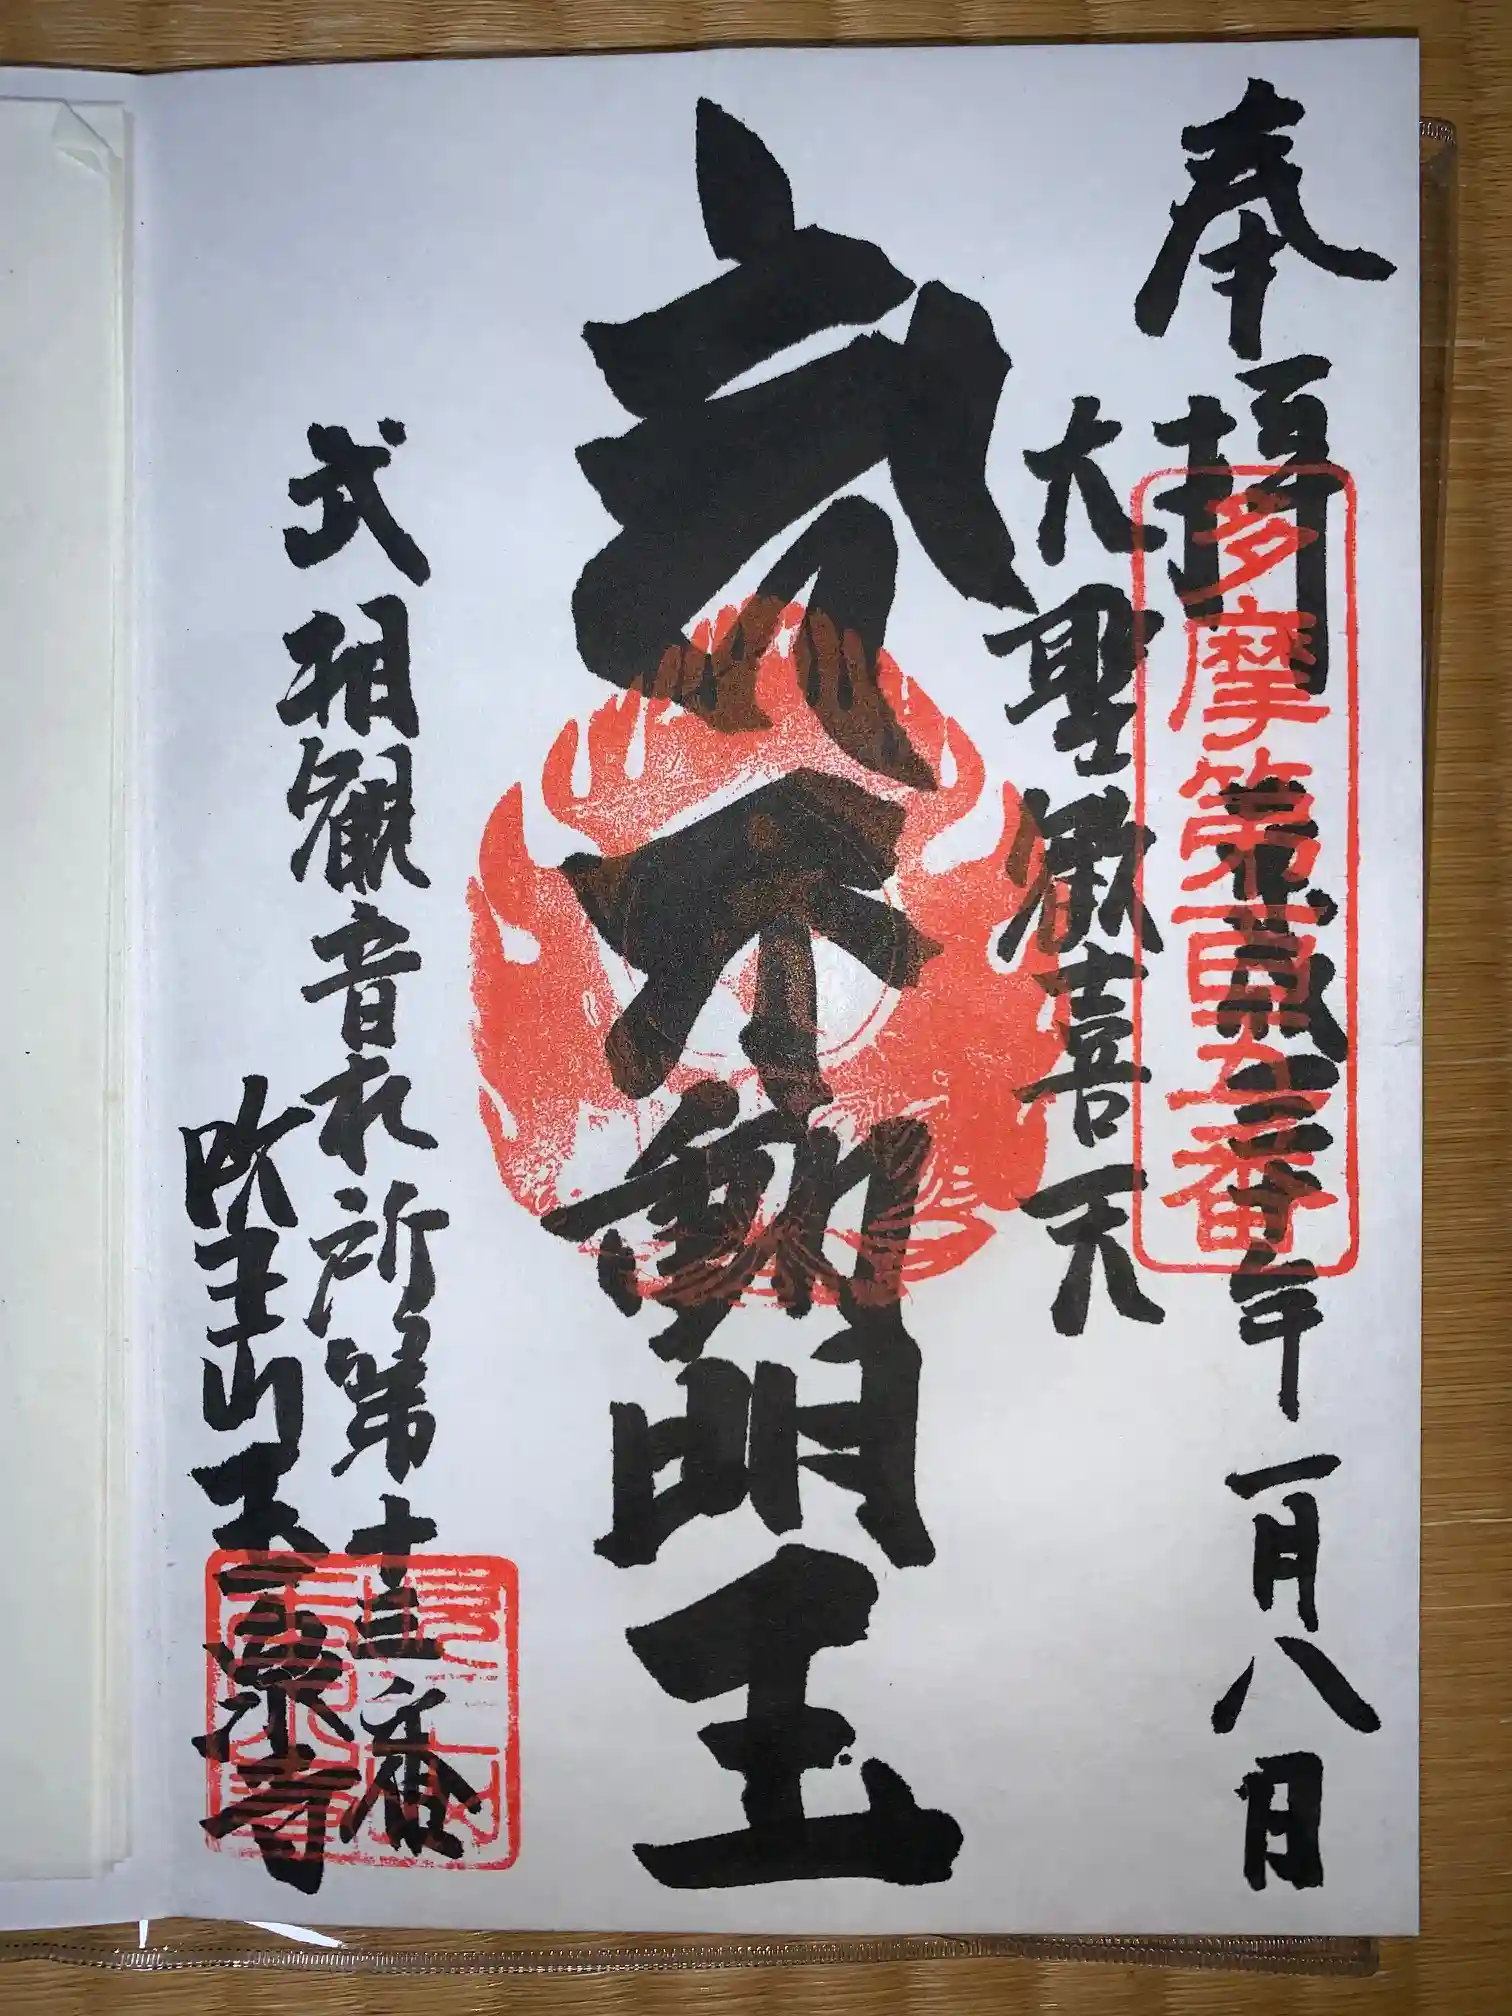 奉拝
年一月八日
多摩第百五番
大聖歓喜天
不動明王
武相観音札所第十三番
王山玉泉寺